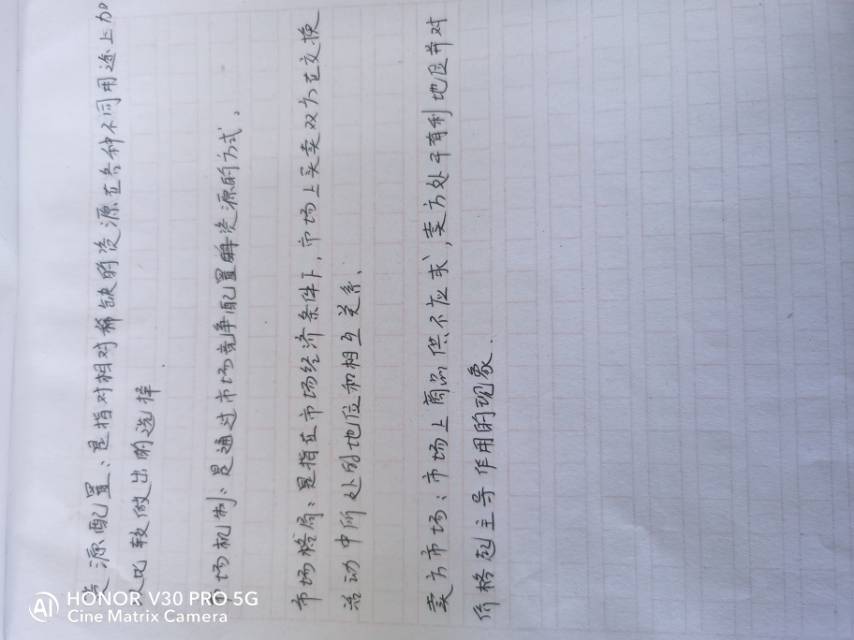 资源配置：是指对相对稀缺的资源在各种不同用途上加
以比较做出的选择.
市场机制：是通过市场竞争配置资源的方式.
市场格局：是指在市场经济条件下,市场上买卖双方在交换
活动中所处的地位和相互关系.
卖方市场：市场上商品供不应求,卖方处于有利地位并对
价格起主导作用的现象.
AI HONOR V30 PRO 5G
Cine Matrix Camera